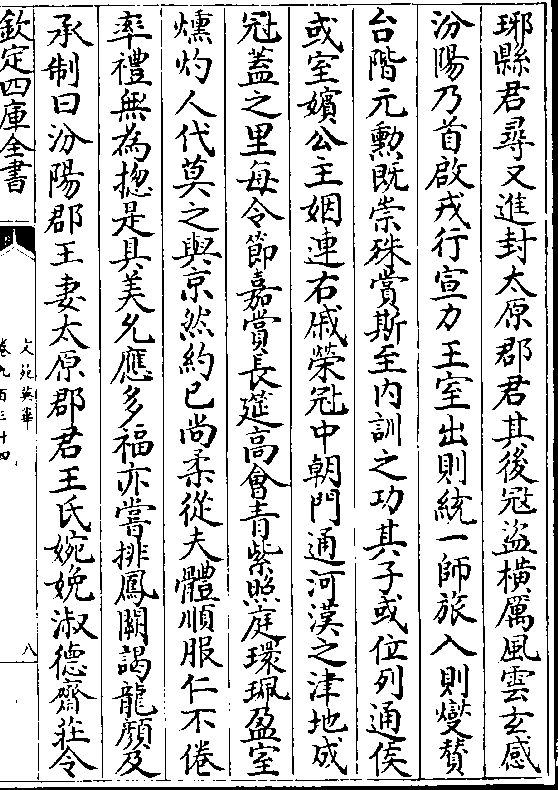 琊縣君尋又進封太原郡君其後冦盜橫厲風雲玄感
汾陽乃首啟戎行宣力王室出則統一師旅入則燮贊
台階元勲既崇殊賞斯至内訓之功其子或位列通侯
或室嬪公主姻連右戚榮冠中朝門通河漢之津地成
冠蓋之里每令節嘉賞長筵高會青紫照庭環珮盈室
燻灼人代莫之與京然約已尚柔從夫體順服仁不倦
率禮無為揔是具美允應多福亦嘗排鳳闕謁龍顔及
承制曰汾陽郡王妻太原郡君王氏婉娩淑德齋莊令
欽定四庫全書
文苑英華
卷九百三十四
八